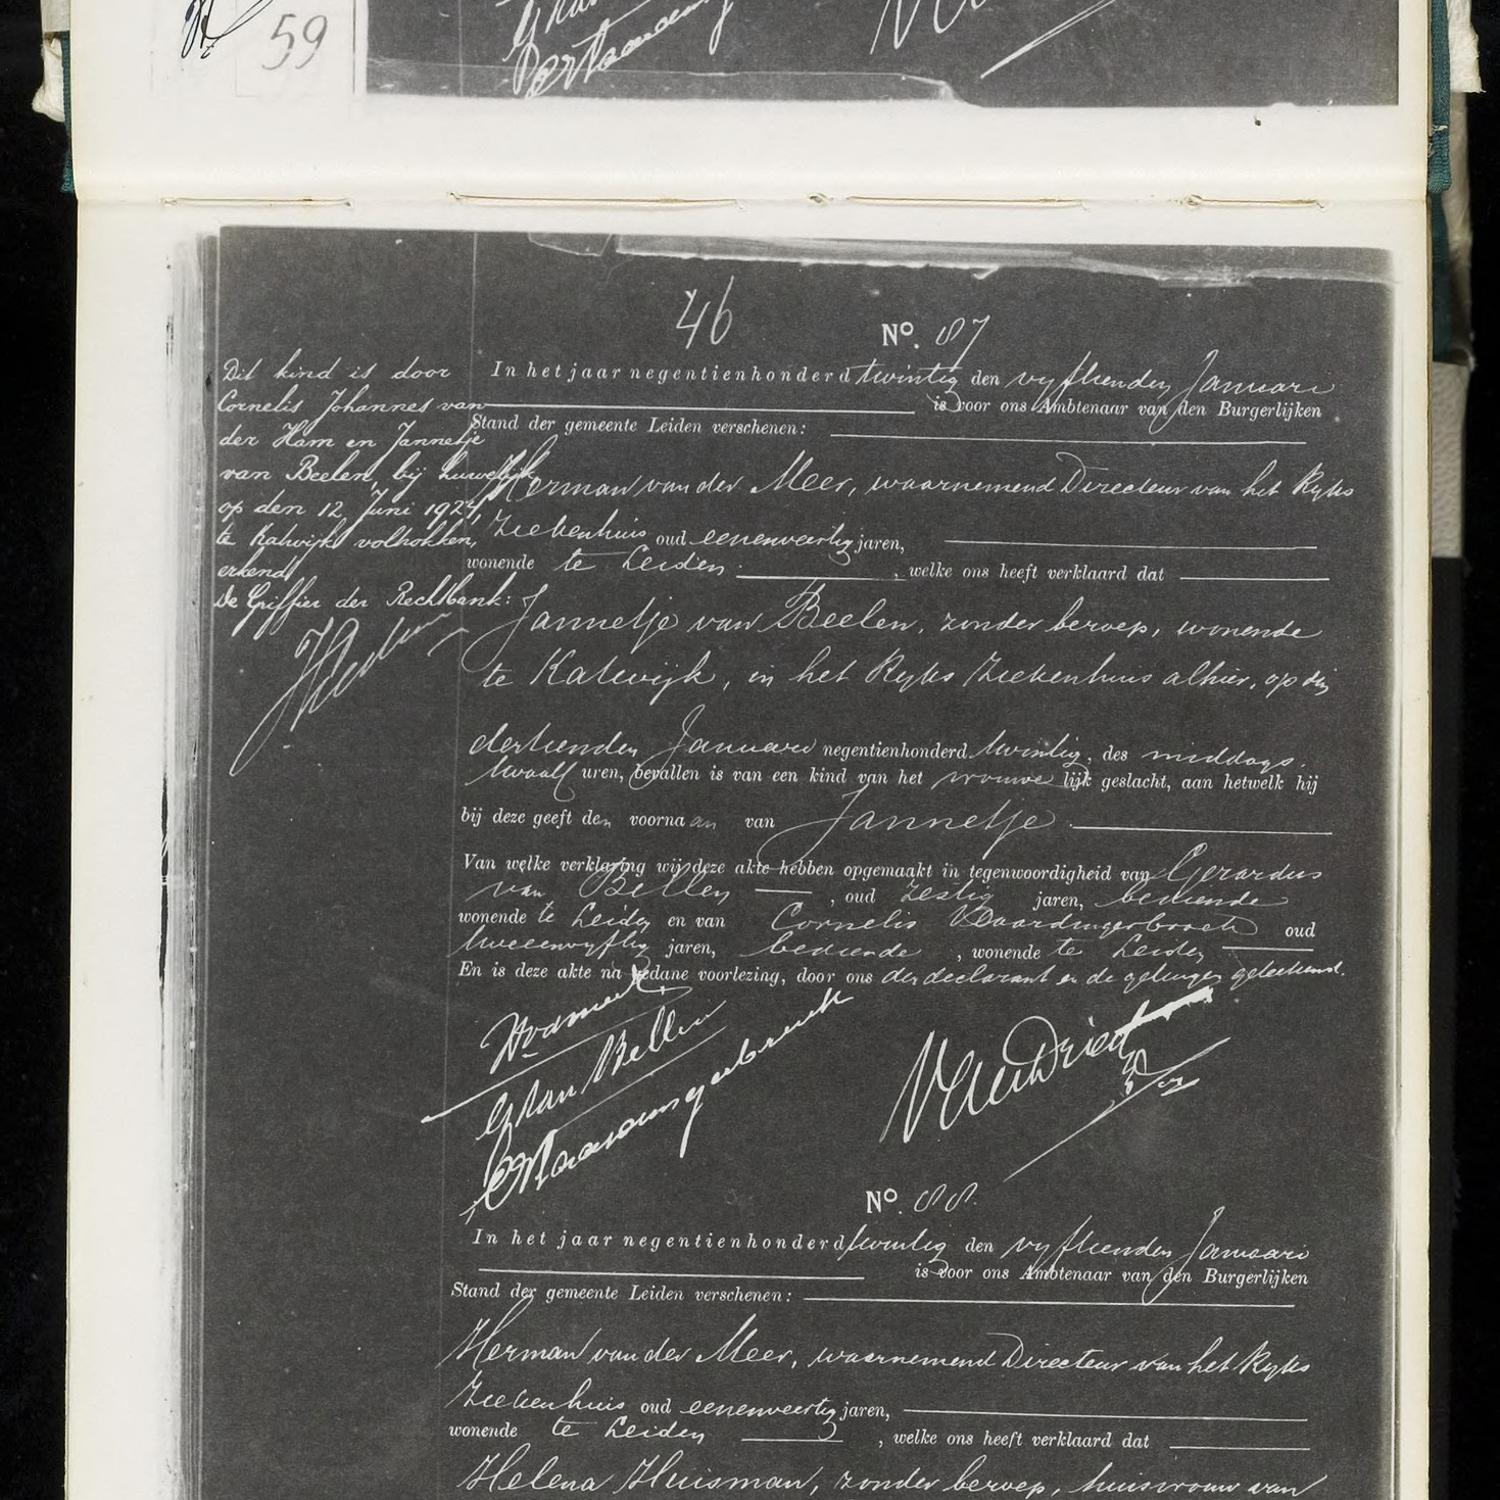 59
46
No. 87
Dit kind is door
Cornelis Johannes van
der Ham en Jannetje
van Beelen, bij huwelijk
op den 12 Juni 1924,
te Katwijk voltrokken,
erkend
De Griffier der Rechtbank:
In het jaar negentienhonderd twintig den vyftienden Januari
is voor ons Ambtenaar van den Burgerlijken
Stand der gemeente Leiden verschenen:
Herman van der Meer, waarnemend Directeur van het Ryks
Ziekenhuis oud eenenveertig jaren,
wonende te Leiden , welke ons heeft verklaard dat
Jannetje van Beelen, zonder beroep, wonende
te Katwijk, in het Ryks Ziekenhuis alhier, op den
dertienden Januari negentienhonderd twintig, des middags
twaalf uren, bevallen is van een kind van het vrouwelijk geslacht, aan hetwelk hij
bij deze geeft den voornaam van Jannetje
Van welke verklaring wij deze akte hebben opgemaakt in tegenwoordigheid van Gerardus
van Bellen , oud zestig jaren, bediende
wonende te Leiden en van Cornelis Vlaardingerbroek oud
tweeenvyftig jaren, bediende , wonende te Leiden
En is deze akte na gedane voorlezing, door ons den declarant en de getuigen geteekend.
HvdMeer
GVan Bellen
CVlaardingerbroek
No. 88.
In het jaar negentienhonderd twintig den vyftienden Januari
is voor ons Ambtenaar van den Burgerlijken
Stand der gemeente Leiden verschenen:
Herman van der Meer, waarnemend Directeur van het Ryks
Ziekenhuis oud eenenveertig jaren,
wonende te Leiden , welke ons heeft verklaard dat
Helena Huisman, zonder beroep, huisvrouw van